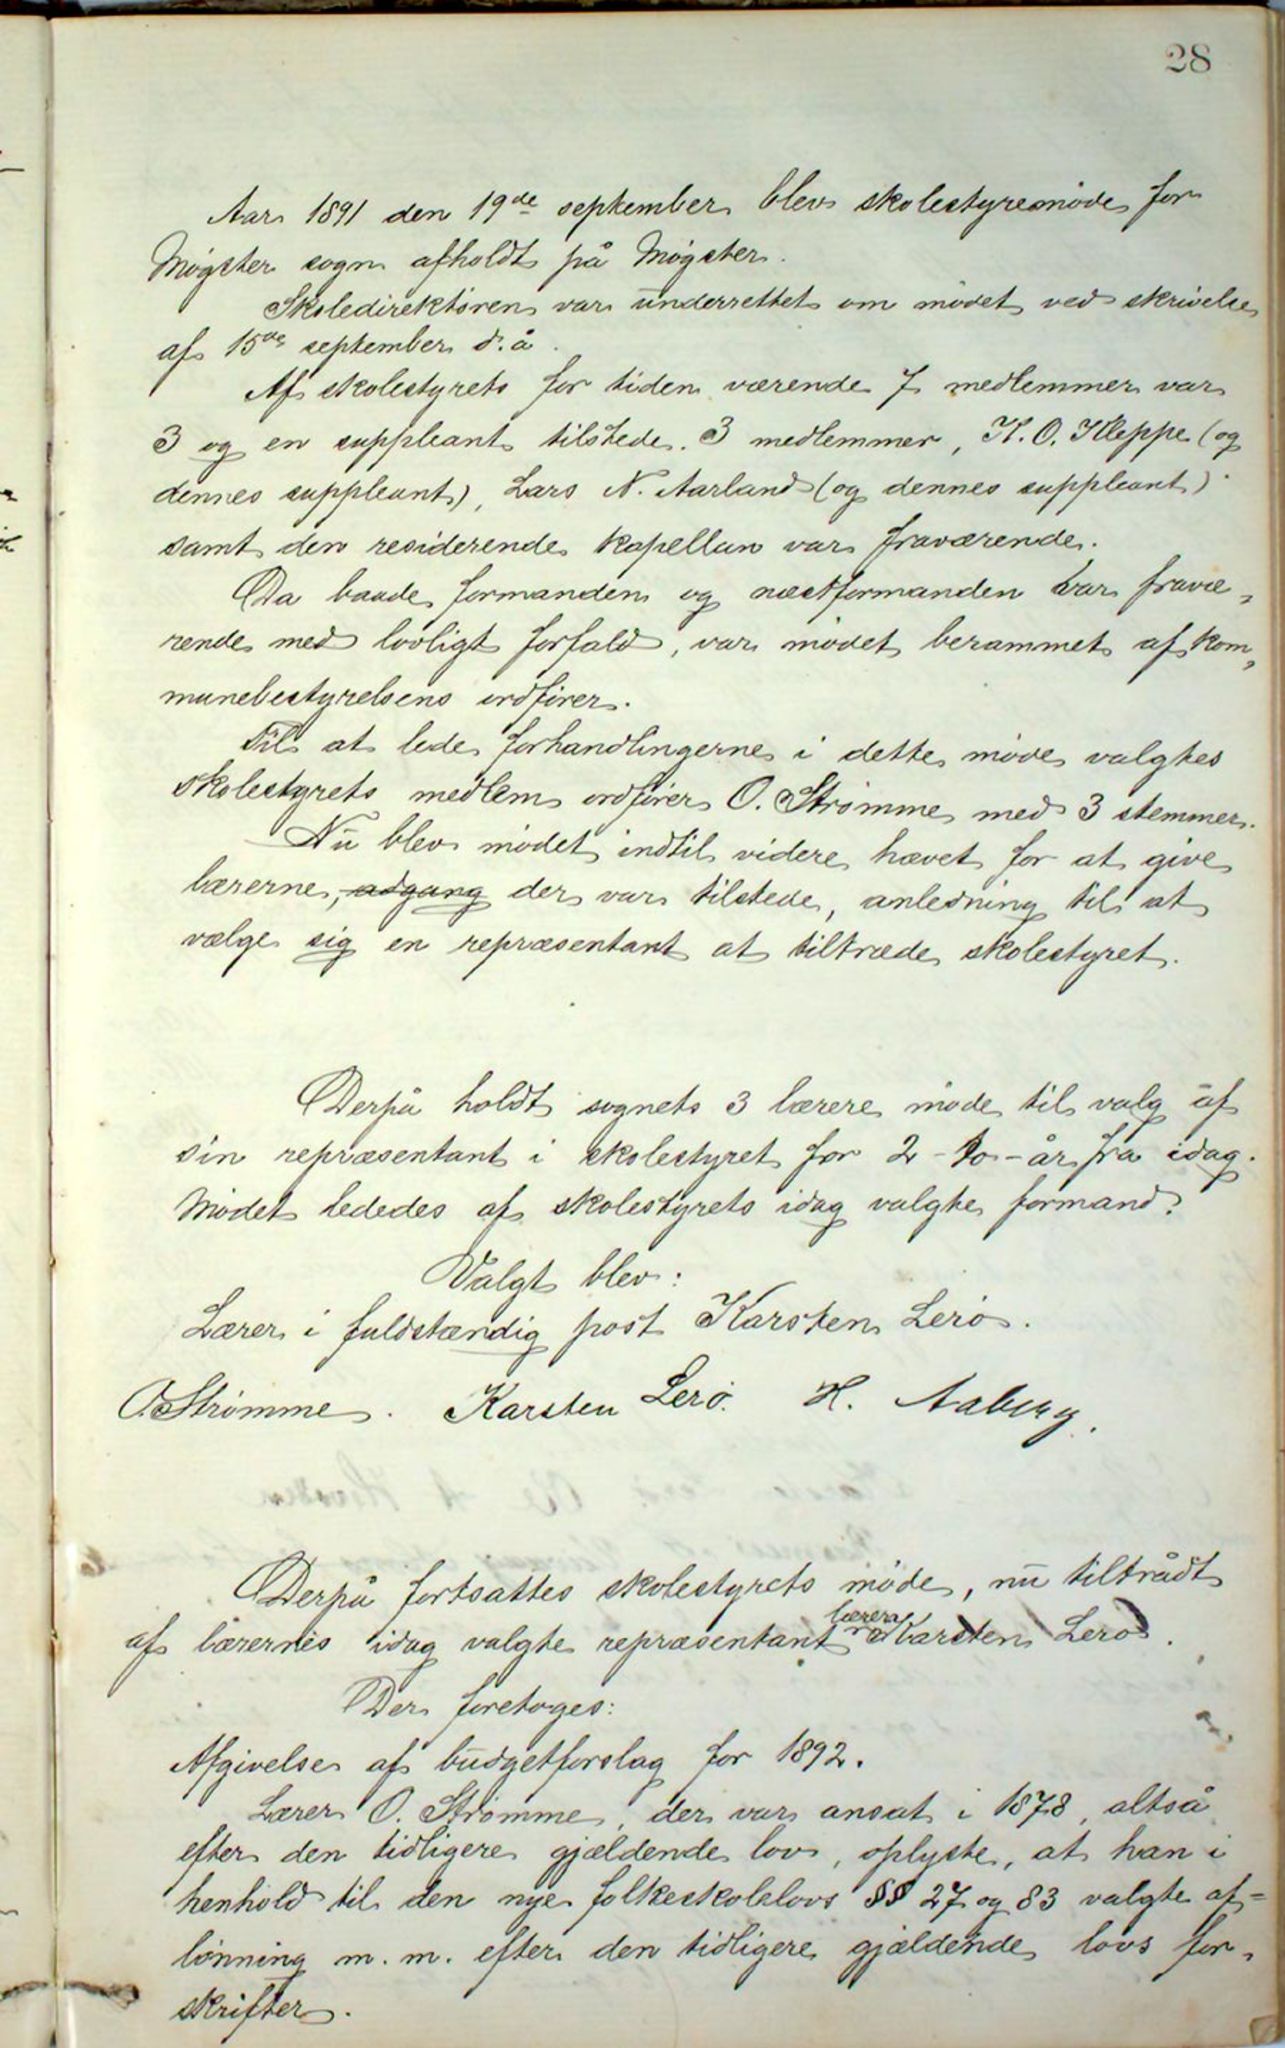 28
Aar 1891 den 19de september blev skolestyremøde for
Møgster sogn afholdt på Møgster.
Skoledirektøren var underrettet om mødet ved skrivelse
af 15de september d.å.
Af skolestyrets for tiden værende 7 medlemmer var
3 og en suppleant tilstede. 3 medlemmer, K. O. Kleppe (og
dennes suppleant), Lars N. Aarland (og dennes suppleant)
samt den residerende kapellan var fraværende.
Da baade formanden og næstformanden var fravæ-
rende med lovligt forfald, var mødet berammet af kom-
munebestyrelsens ordfører.
Til at lede forhandlingerne i dette møde valgtes
skolestyrets medlem ordfører O. Strømme med 3 stemmer.
Nu blev mødet indtil videre hævet for at give
lærerne, adgang der var tilstede, anledning til at
vælge sig en repræsentant at tiltræde skolestyret.
Derpå holdt sognets 3 lærere møde til valg af
sin repræsentant i skolestyret for 2 - to - år fra idag.
Mødet lededes af skolestyrets idag valgte formand.
Valgt blev:
Lærer i fuldstændig post Karsten Lerø.
O. Strømme. Karsten Lerø. H. Aaberg.
Derpå fortsattes skolestyrets møde, nu tiltrådt
af lærernes idag valgte repræsentant lærer Karsten Lerø.
Der foretoges:
Afgivelse af budgetforslag for 1892.
Lærer O. Strømme, der var ansat i 1878, altså
efter den tidligere gjældende lov, oplyste, at han i
henhold til den nye folkeskolelovs §§ 27 og 83 valgte af-
lønning m. m. efter den tidligere gjældende lovs for-
skrifter.